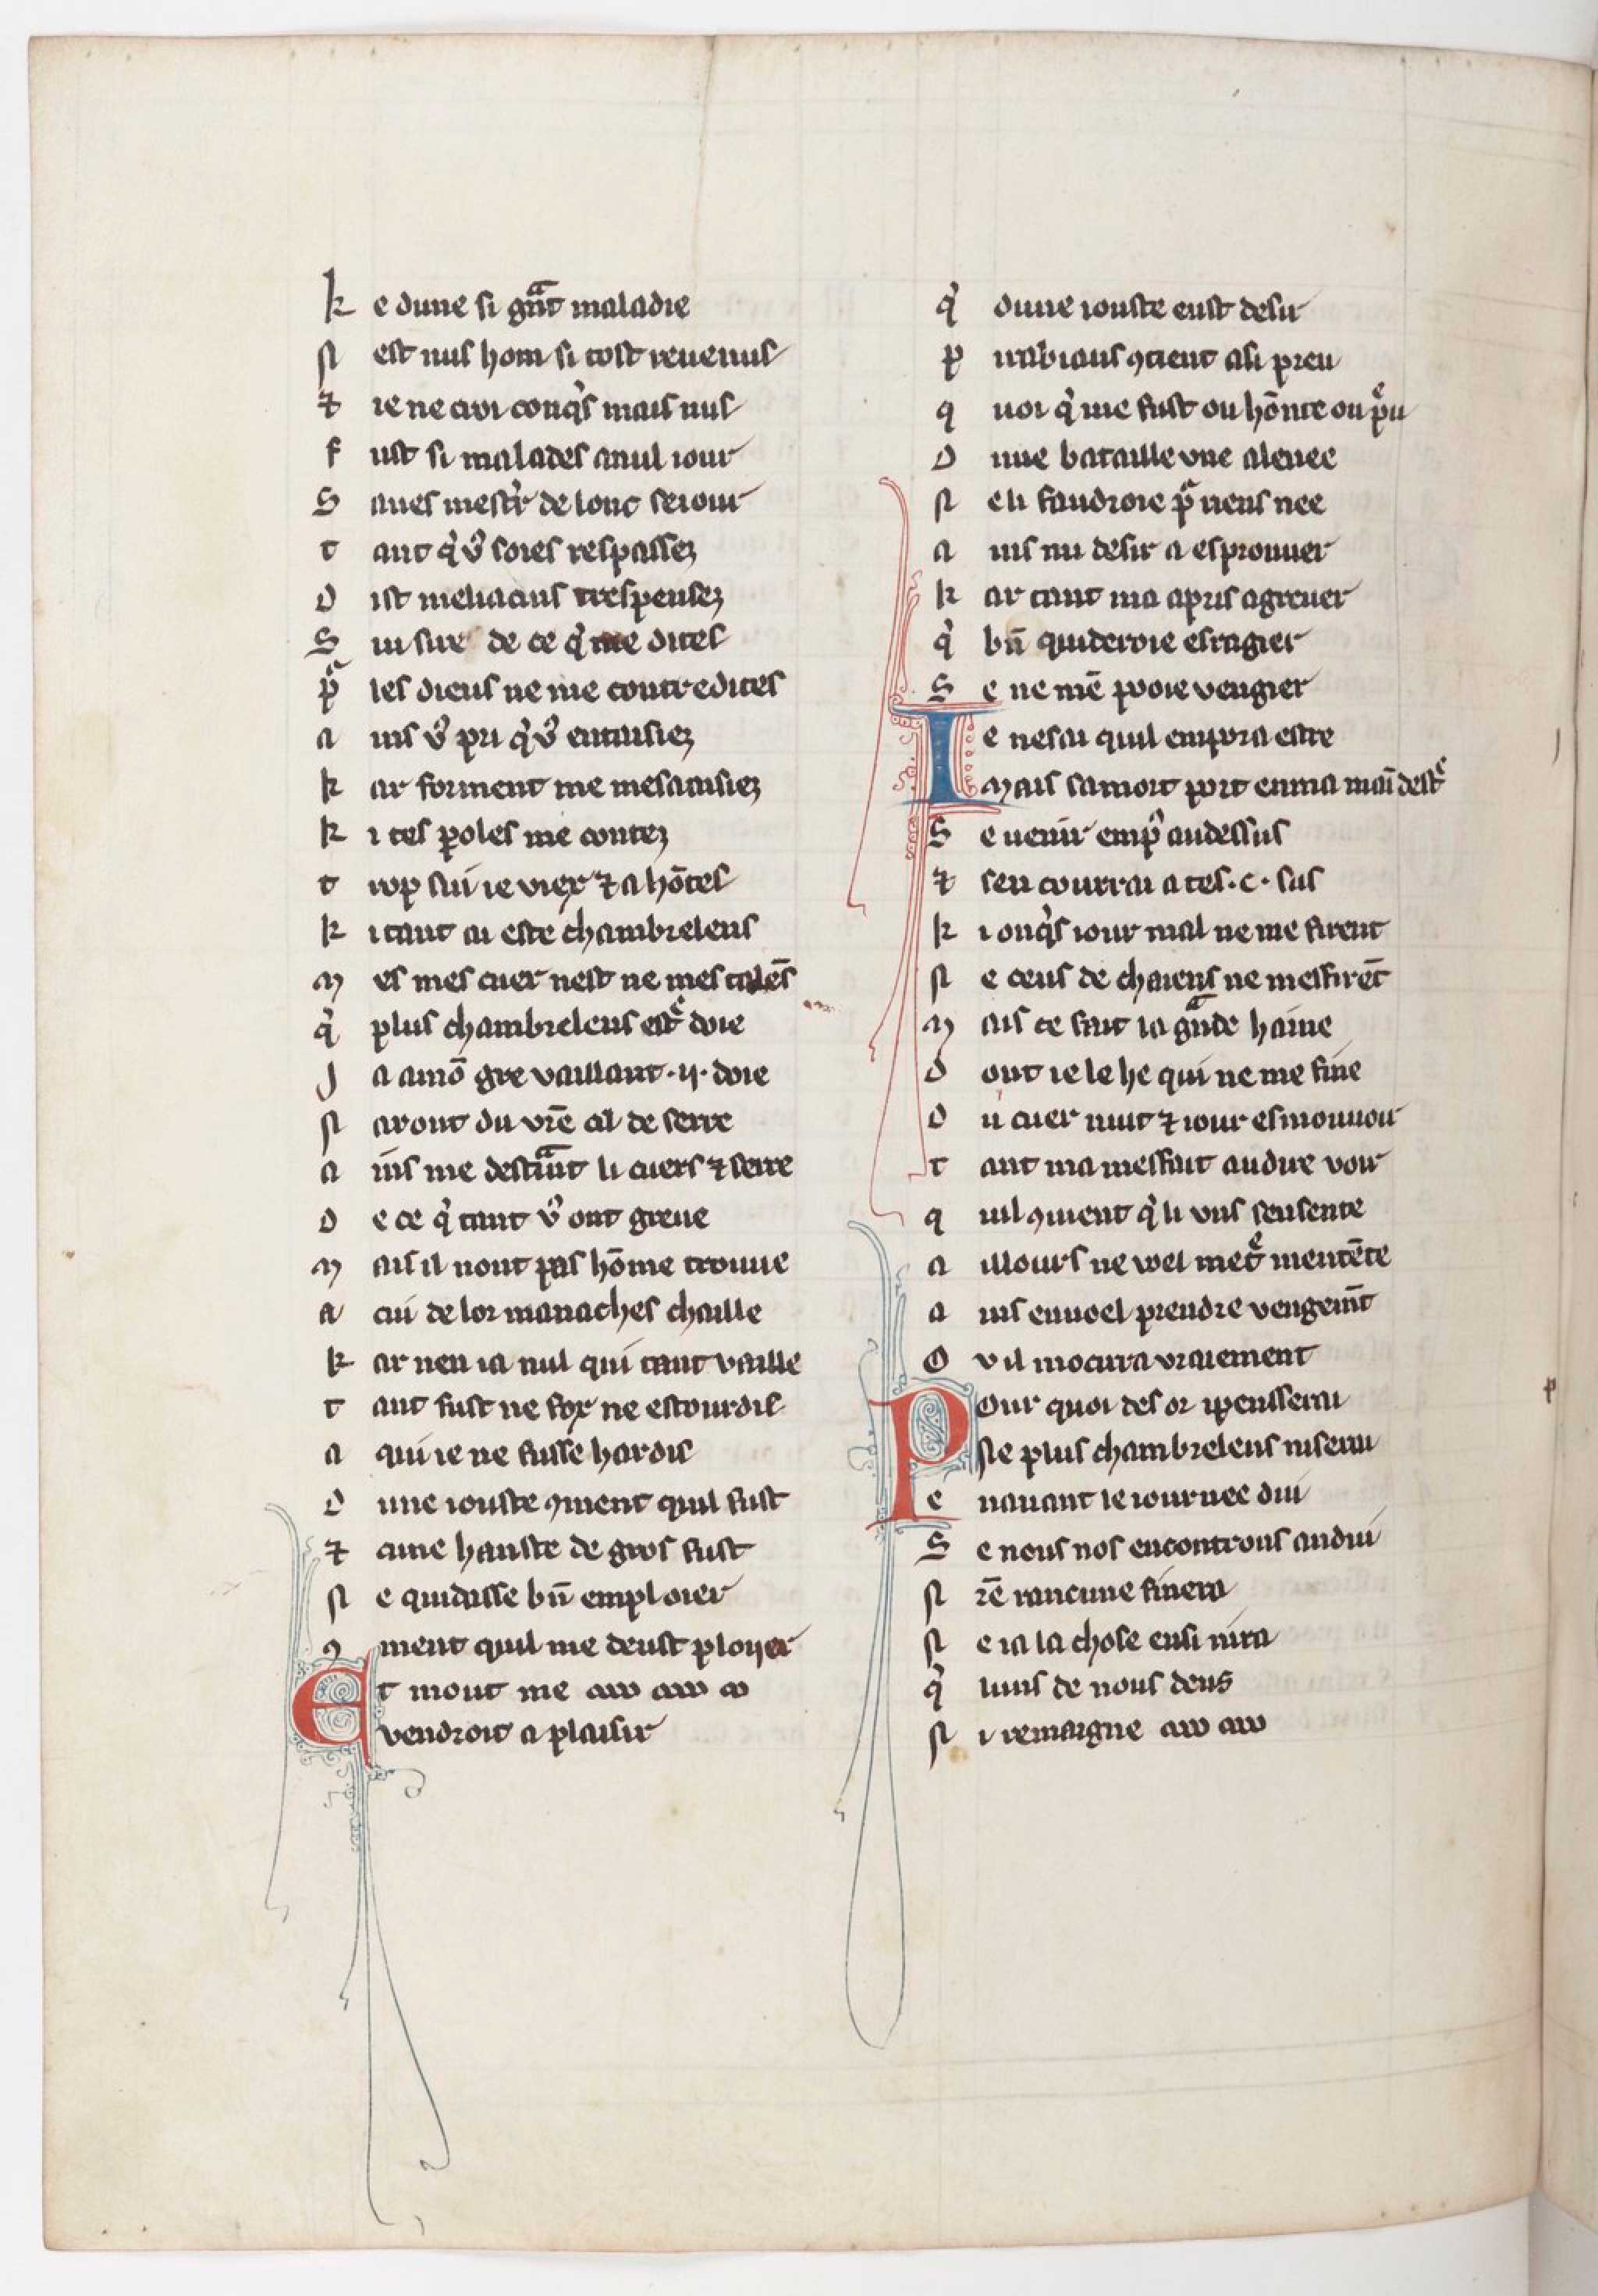 k e dune si gᷓnt maladie
N est nus hom si tost reuenus
⁊ ie ne croi conq̇s mais nus
f ust si malades a nul iour
S aues mestẏ de lonc seiour
t ant q̇ vͦ soies respassez
D ist meliacins trespensez
S iu sire de ce q̇ me dites
pᷓ les dieus ne me contredites
A ins vͦ pri q̇ vͦ entaisiez
k ar forment me mesaaisiez
k i tes ꝑoles me contez
t rop sui ie viex ⁊ ahōtes
k i tant ai este chambrelens
M es mes cuer nest ne mes talēs
q̇ plus chambrelens estͤ doie
J a a mō gre vaillant .ij. doie
N aront du vr̄e cil de serre
A ins me destᷓint li cuers ⁊ serre
D e ce q̇ tant vͦ ont greue
M ais il nont pas hōme trouue
A cui de lor manaches chaille
k ar nen ia nul qui tant vaille
t ant fust ne fox ne estourdis
A qui ie ne fusse hardis
D une iouste ꝯment quil fust
⁊ cune hanste de gros fust
N e quidasse bn̄ emploier
ꝯ ment quil me deust ploijer
Et mout me
vendroit a plaisir
q̇ dune iouste eust desir
P urabiaus ꝯtient asi preu
q uoi q̇ me fust ou hōnte ou pͤu
D une bataille vne aleuee
N e li faudroie pᷓ riens nee
A ins mi desir a esprouuer
k ar tant ma apris agreuer
q̇ bn̄ quideroie esragier
S e ne mē pooie vengier
Ie ne sai quil em pora estre
Mais sa mort port en ma mai̅ destͤ
S e uenir em pͦ au dessus
⁊ sen courrai a tes .c. sus
k i onq̇s iour mal ne me firent
N e ceus de chaiens ne mesfirēt
M ais ce fait la gᷓnde haine
D ont ie le he qui ne me fine
D u cuer nuit ⁊ iour esmouuoir
t ant ma mesfait au dire voir
q uil ꝯuient q̇ li vns sen sente
A illours ne voel metͤ mentēte
A ins en uoel prendre vengem̄t
O v il mocirra vraiement
Pour quoi des or ipensserai
Ne plus chambrelens ni serai
E nauant le iournee dui
S e nous nos encontrons andui
N r̄e rancune finera
N e ia la chose ensi nira
q̇ luns de nous deus
N i remaigne